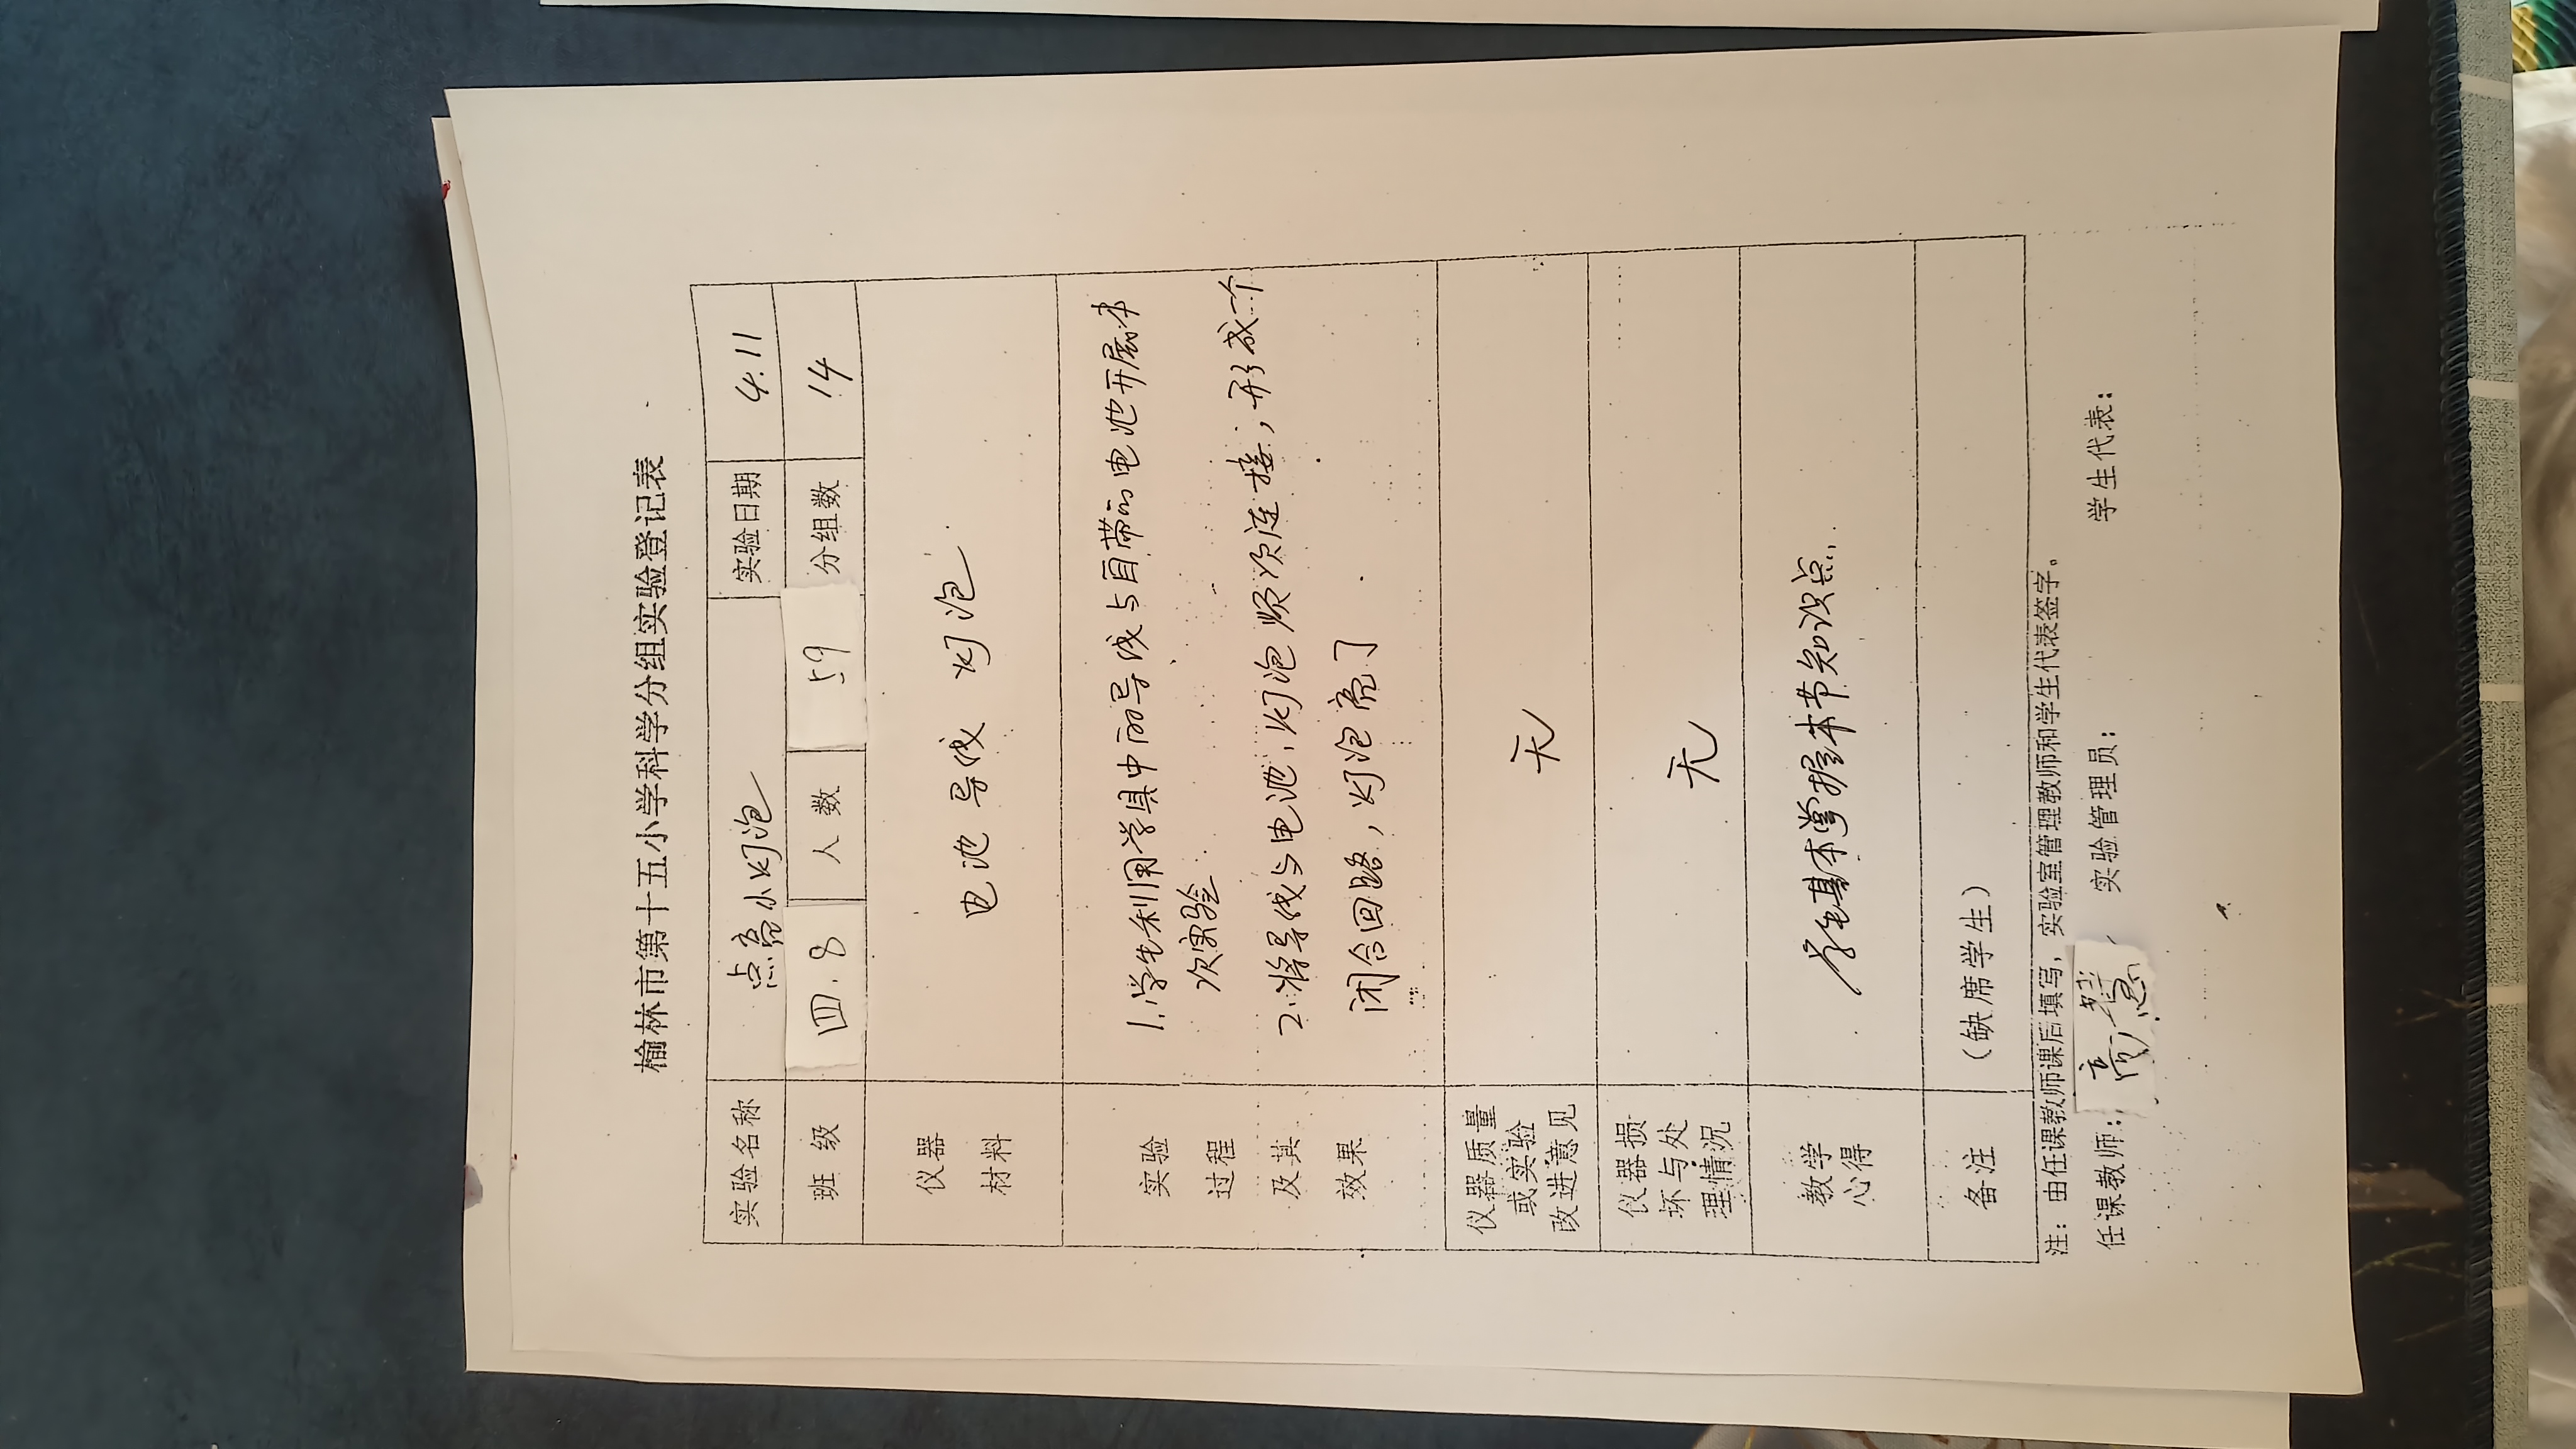 榆林市第十五小学科学分组实验登记表
实验名称 点亮小灯泡 实验日期 4.11
班级 四.8 人数 59 分组数 14
仪器
材料
电池 导线 灯泡
实验
过程
及其
效果
1.学生利用学具中的导线与自带的电池开展本
次实验
2.将导线与电池、灯泡顺次连接,形成一个
闭合回路,灯泡亮了
仪器质量
或实验
改进意见
无
仪器损
坏与处
理情况
无
教学
心得
学生基本掌握本节知识点.
备注 (缺席学生)
注:由任课教师课后填写,实验室管理教师和学生代表签字。
任课教师:高慧 实验管理员: 学生代表: